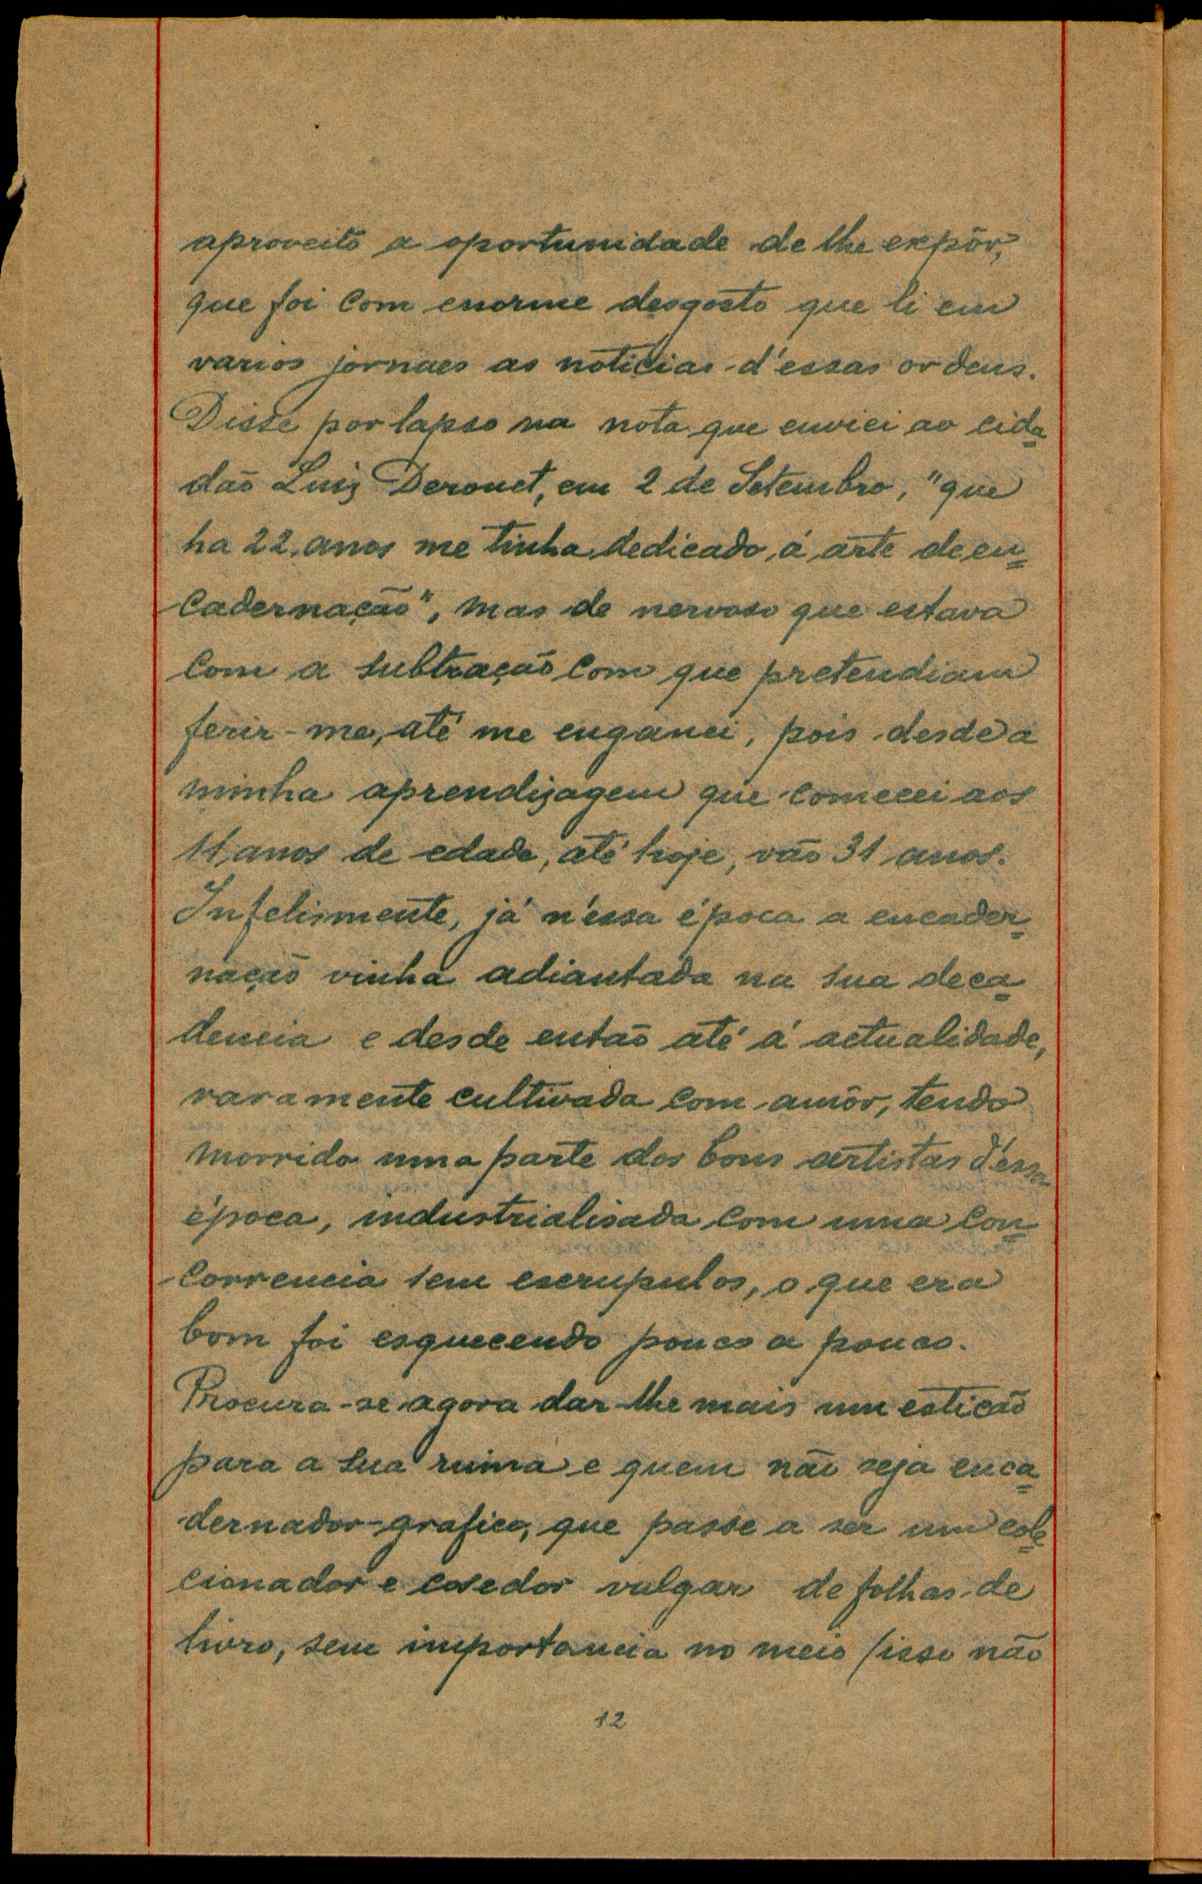 aproveito a oportunidade de lhe expôr,
que foi com enorme desgosto que li em
varios jornaes as noticias d'essas ordens.
Disse por lapso na nota que enviei ao cida=
dão Luiz Derouet, em 2 de Setembro, "que
ha 22 anos me tinha dedicado á arte de en=
cadernação", mas de nervoso que estava
com a subtração com que pretendiam
ferir-me, até me enganei, pois desde a
minha aprendizagem que comecei aos
11 anos de edade, até hoje, vão 31 anos.
Infelismente, já n'essa época a encader=
nação vinha adiantada na sua deca=
dencia e desde então até á actualidade,
raramente cultivada com amôr, tendo
morrido uma parte dos bons artistas d'essa
época, industrialisada com uma con=
correncia sem escrupulos, o que era
bom foi esquecendo pouco a pouco.
Procura-se agora dar-lhe mais um esticão
para a sua ruina e quem não seja enca=
dernador-grafico, que passe a ser um cole=
cionador e cosedor vulgar de folhas de
livro, sem importancia no meio (isso não
12